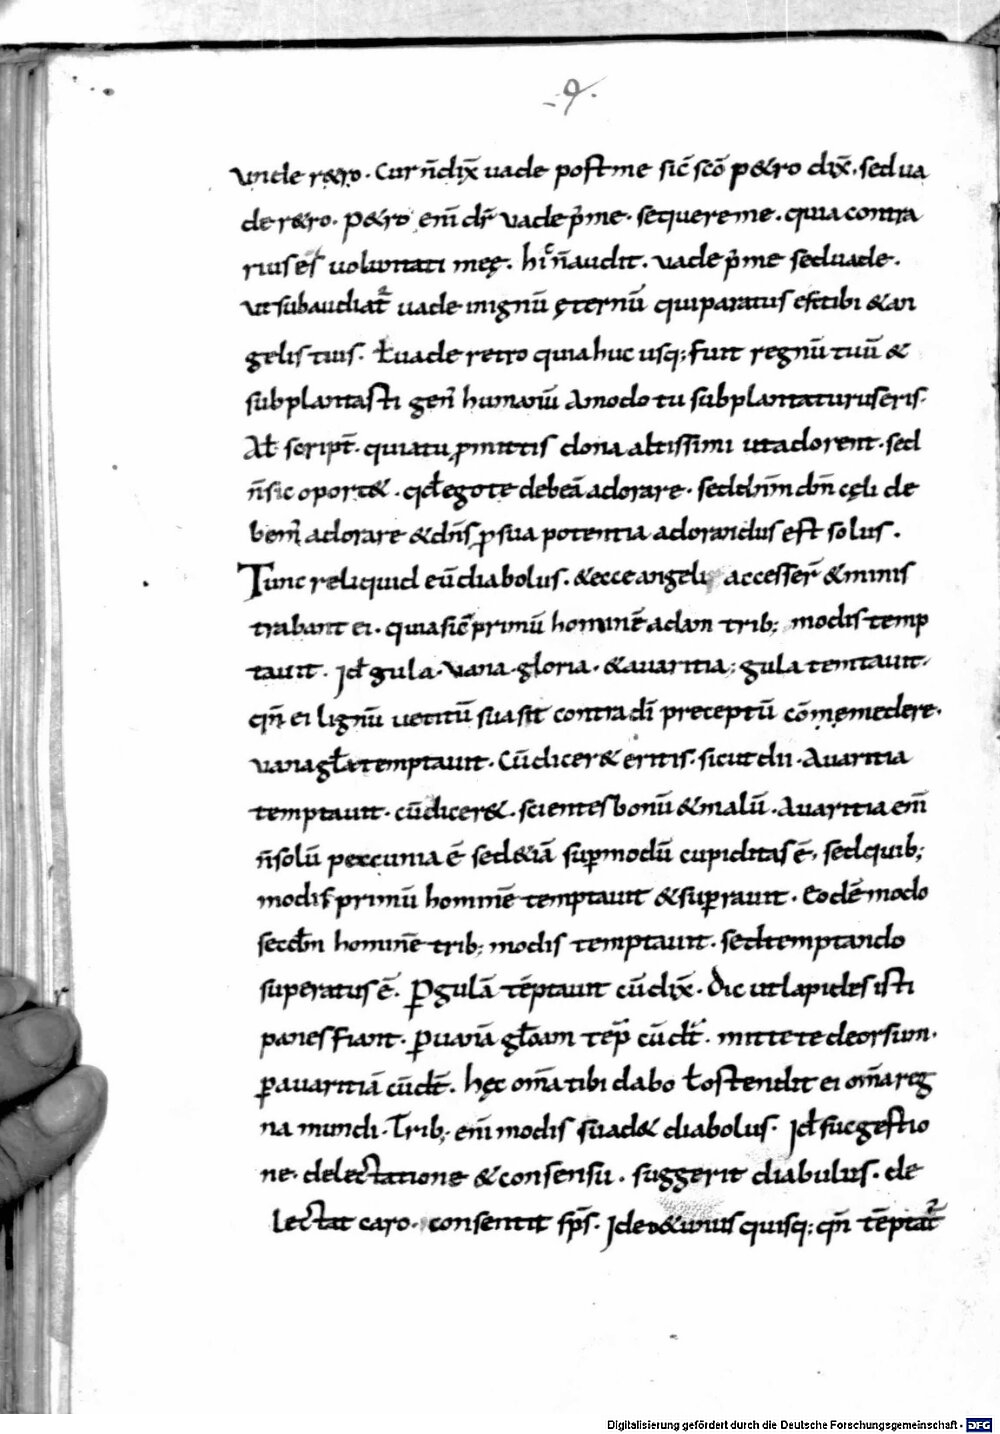 .9.
unde r&ro. Cur n̄ dix̄ uade post me sic̄ sc̄o p&ro dix̄. sed ua
de r&ro. p&ro eni͞ dr̄ uade p̄ me. sequere me. quia contra
rius es uoluntati meę. hic n̄ audit. uade p̄ me sed uade.
ut subaudiat᷒ uade in ignū ęternū qui paratus est tibi & an
gelis tuis. ł uade retro quia huc usq; fuit regnū tuū &
subplantasti gen̄ humanū Amodo tu subplantaturus eris.
Aƚ script̄. quia tu ꝓmittis dona altissimi ut adorent. sed
n̄ sic oport&. qd̄ ego te debeā adorare. sed dn̄m dn̄ cęli de
bem̄ adorare & dn̄s ꝓ sua potentia adorandus est solus.
Tunc reliquid eū diabolus. & ecce angeli accesser̄ & minis
trabant ei. quia sic̄ primū hominē adam trib; modis temp
tauit. Id̄ gula. uana gloria. & auaritia; gula temtauit.
qn̄ ei lignū uetitū suasit contra dī preceptū cōmemedere.
uana gƚa temptauit. Cū dicer& eritis. sicut dii. Auaritia
temptauit. cū dicer&. scientes bonū & malū. Auaritia eni͞
n̄ solū peccunia ē sed & iā suꝑ modū cupiditas ē. sed quib;
modis primū hominē temptauit & suꝑauit. Eodē modo
secd̄m hominē trib; modis temptauit. sed temptando
superatus ē. ꝑ gulā tēptauit cū dix̄. Dic ut lapides isti
panes fiant. ꝑ uanā gƚoam tēp̄ cū dt̄. mitte te deorsum.
ꝑ auaritiā cū dt̄. hęc om̄a tibi dabo ł ostendit ei om̄a reg
na mundi. Trib; eni͞ modis suad& diabolus. Id̄ sucgestio
ne. delectatione & consensu. suggerit diabulus. de
lectat caro. consentit sp̄s. Ideo & unus quisq; qn̄ tēptat᷒
Digitalisierung gefördert durch die Deutsche Forschungsgemeinschaft - DFG